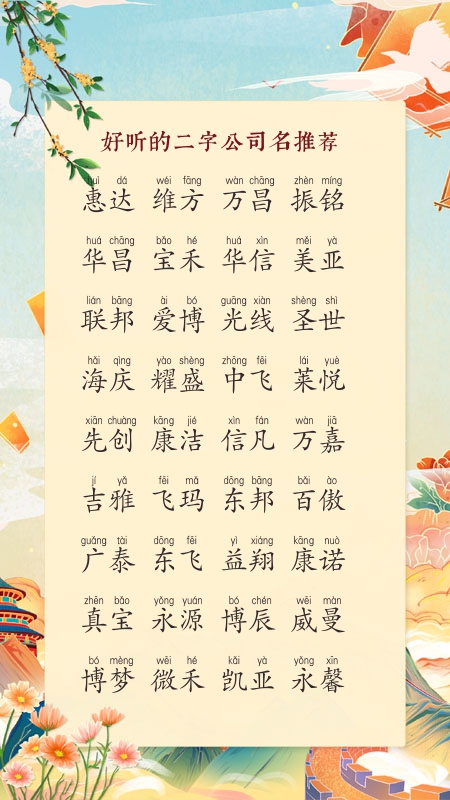 好听的二字公司名推荐
huì dá wéi fāng wàn chāng zhèn míng
惠达 维方 万昌 振铭
huá chāng bǎo hé huá xìn měi yà
华昌 宝禾 华信 美亚
lián bāng ài bó guāng xiàn shèng shì
联邦 爱博 光线 圣世
hǎi qìng yào shèng zhōng fēi lái yuè
海庆 耀盛 中飞 莱悦
xiān chuàng kāng jié xìn fán wàn jiā
先创 康洁 信凡 万嘉
jí yǎ fēi mǎ dōng bāng bǎi ào
吉雅 飞玛 东邦 百傲
guǎng tài dōng fēi yì xiáng kāng nuò
广泰 东飞 益翔 康诺
zhēn bǎo yǒng yuán bó chén wēi màn
真宝 永源 博辰 威曼
bó mèng wēi hé kǎi yà yǒng xīn
博梦 微禾 凯亚 永馨